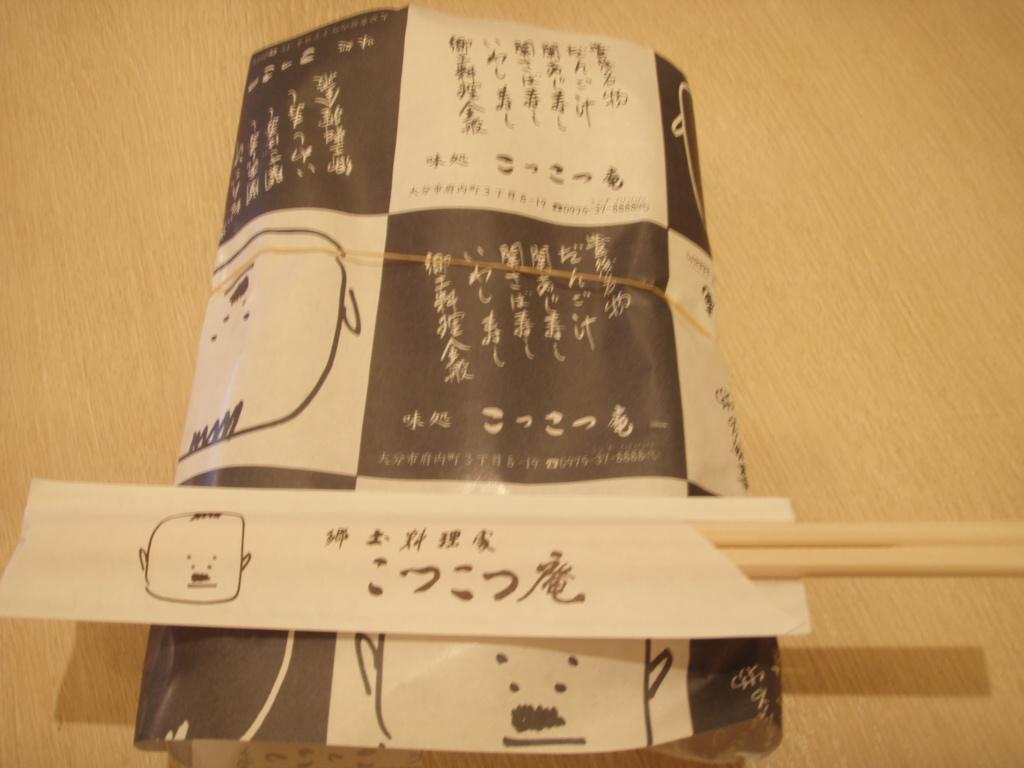 豊後名物
だんご汁
関あじ寿し
関さば寿し
いわし寿し
郷土料理全般
味処 こつこつ庵
大分市府内町3丁目8-19 ☎0975-37-8888㈹
豊後名物
だんご汁
関あじ寿し
関さば寿し
いわし寿し
郷土料理全般
味処 こつこつ庵
大分市府内町3丁目8-19 ☎0975-37-8888㈹
郷土料理全般
いわし寿し
味処
郷土料理家
こつこつ庵